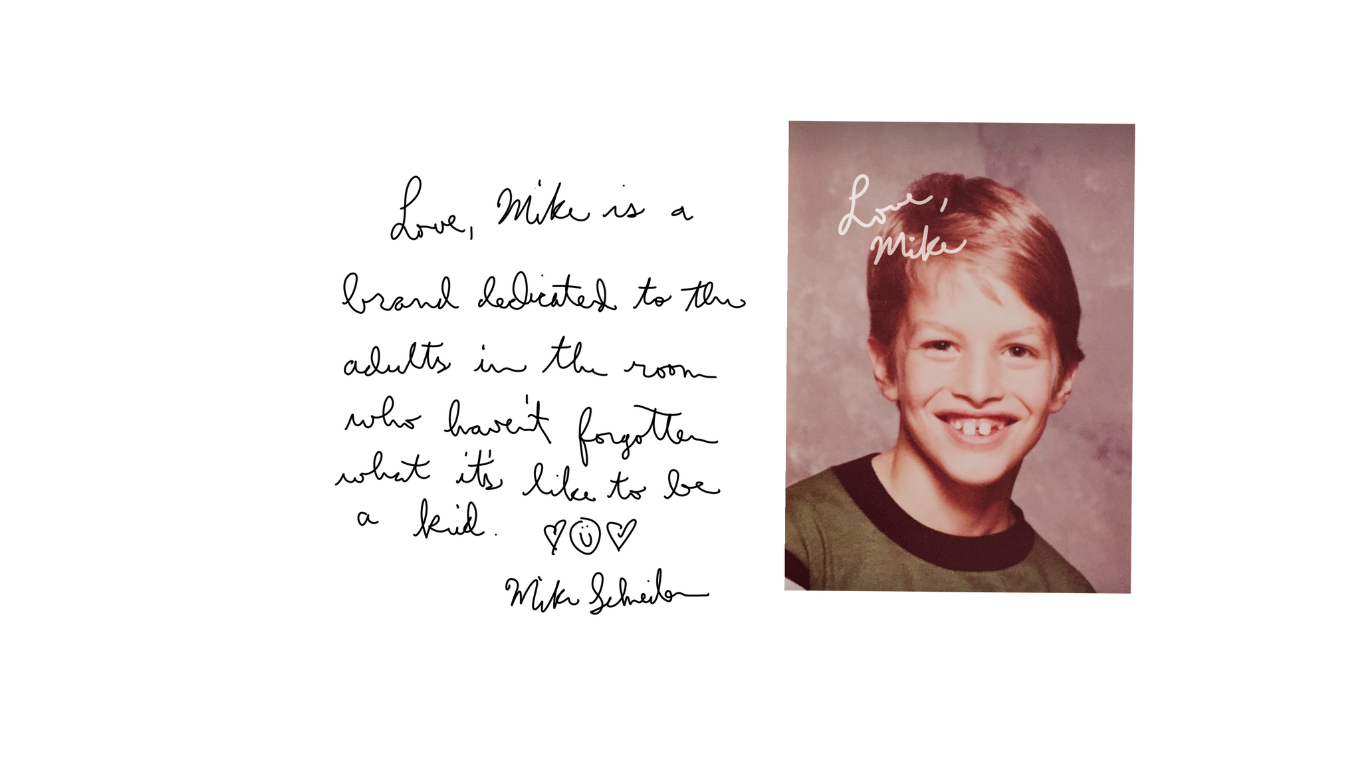 Love, Mike is a
brand dedicated to the
adults in the room
who haven't forgotten
what it's like to be
a kid.
Mike Schreiber
Love,
Mike